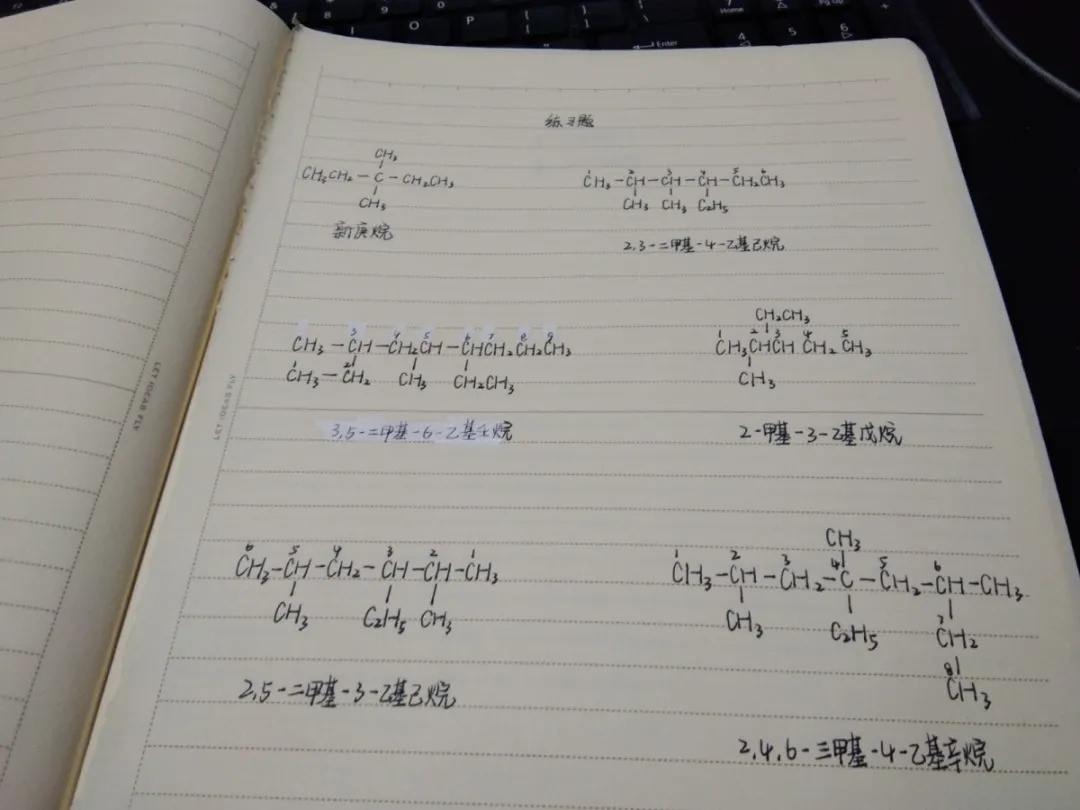 练习题
CH3
CH3CH2-C-CH2CH3
CH3
新庚烷
1 2 3 4 5 6
CH3-CH-CH-CH-CH2CH3
CH3 CH3 C2H5
2,3-二甲基-4-乙基己烷
3 4 5 6 7 8 9
CH3-CH-CH2CH-CHCH2CH2CH3
1 2
CH3-CH2 CH3 CH2CH3
3,5-二甲基-6-乙基壬烷
CH2CH3
1 2 3 4 5
CH3CHCH CH2 CH3
CH3
2-甲基-3-乙基戊烷
6 5 4 3 2 1
CH3-CH-CH2-CH-CH-CH3
CH3 C2H5 CH3
2,5-二甲基-3-乙基己烷
CH3
1 2 3 4 5 6
CH3-CH-CH2-C-CH2-CH-CH3
CH3 C2H5
7
CH2
8
CH3
2,4,6-三甲基-4-乙基辛烷
LET IDEAS FLY
LET IDEAS FLY
O P
Enter
Home
Pg Up
8 9 0
7
4 5 6